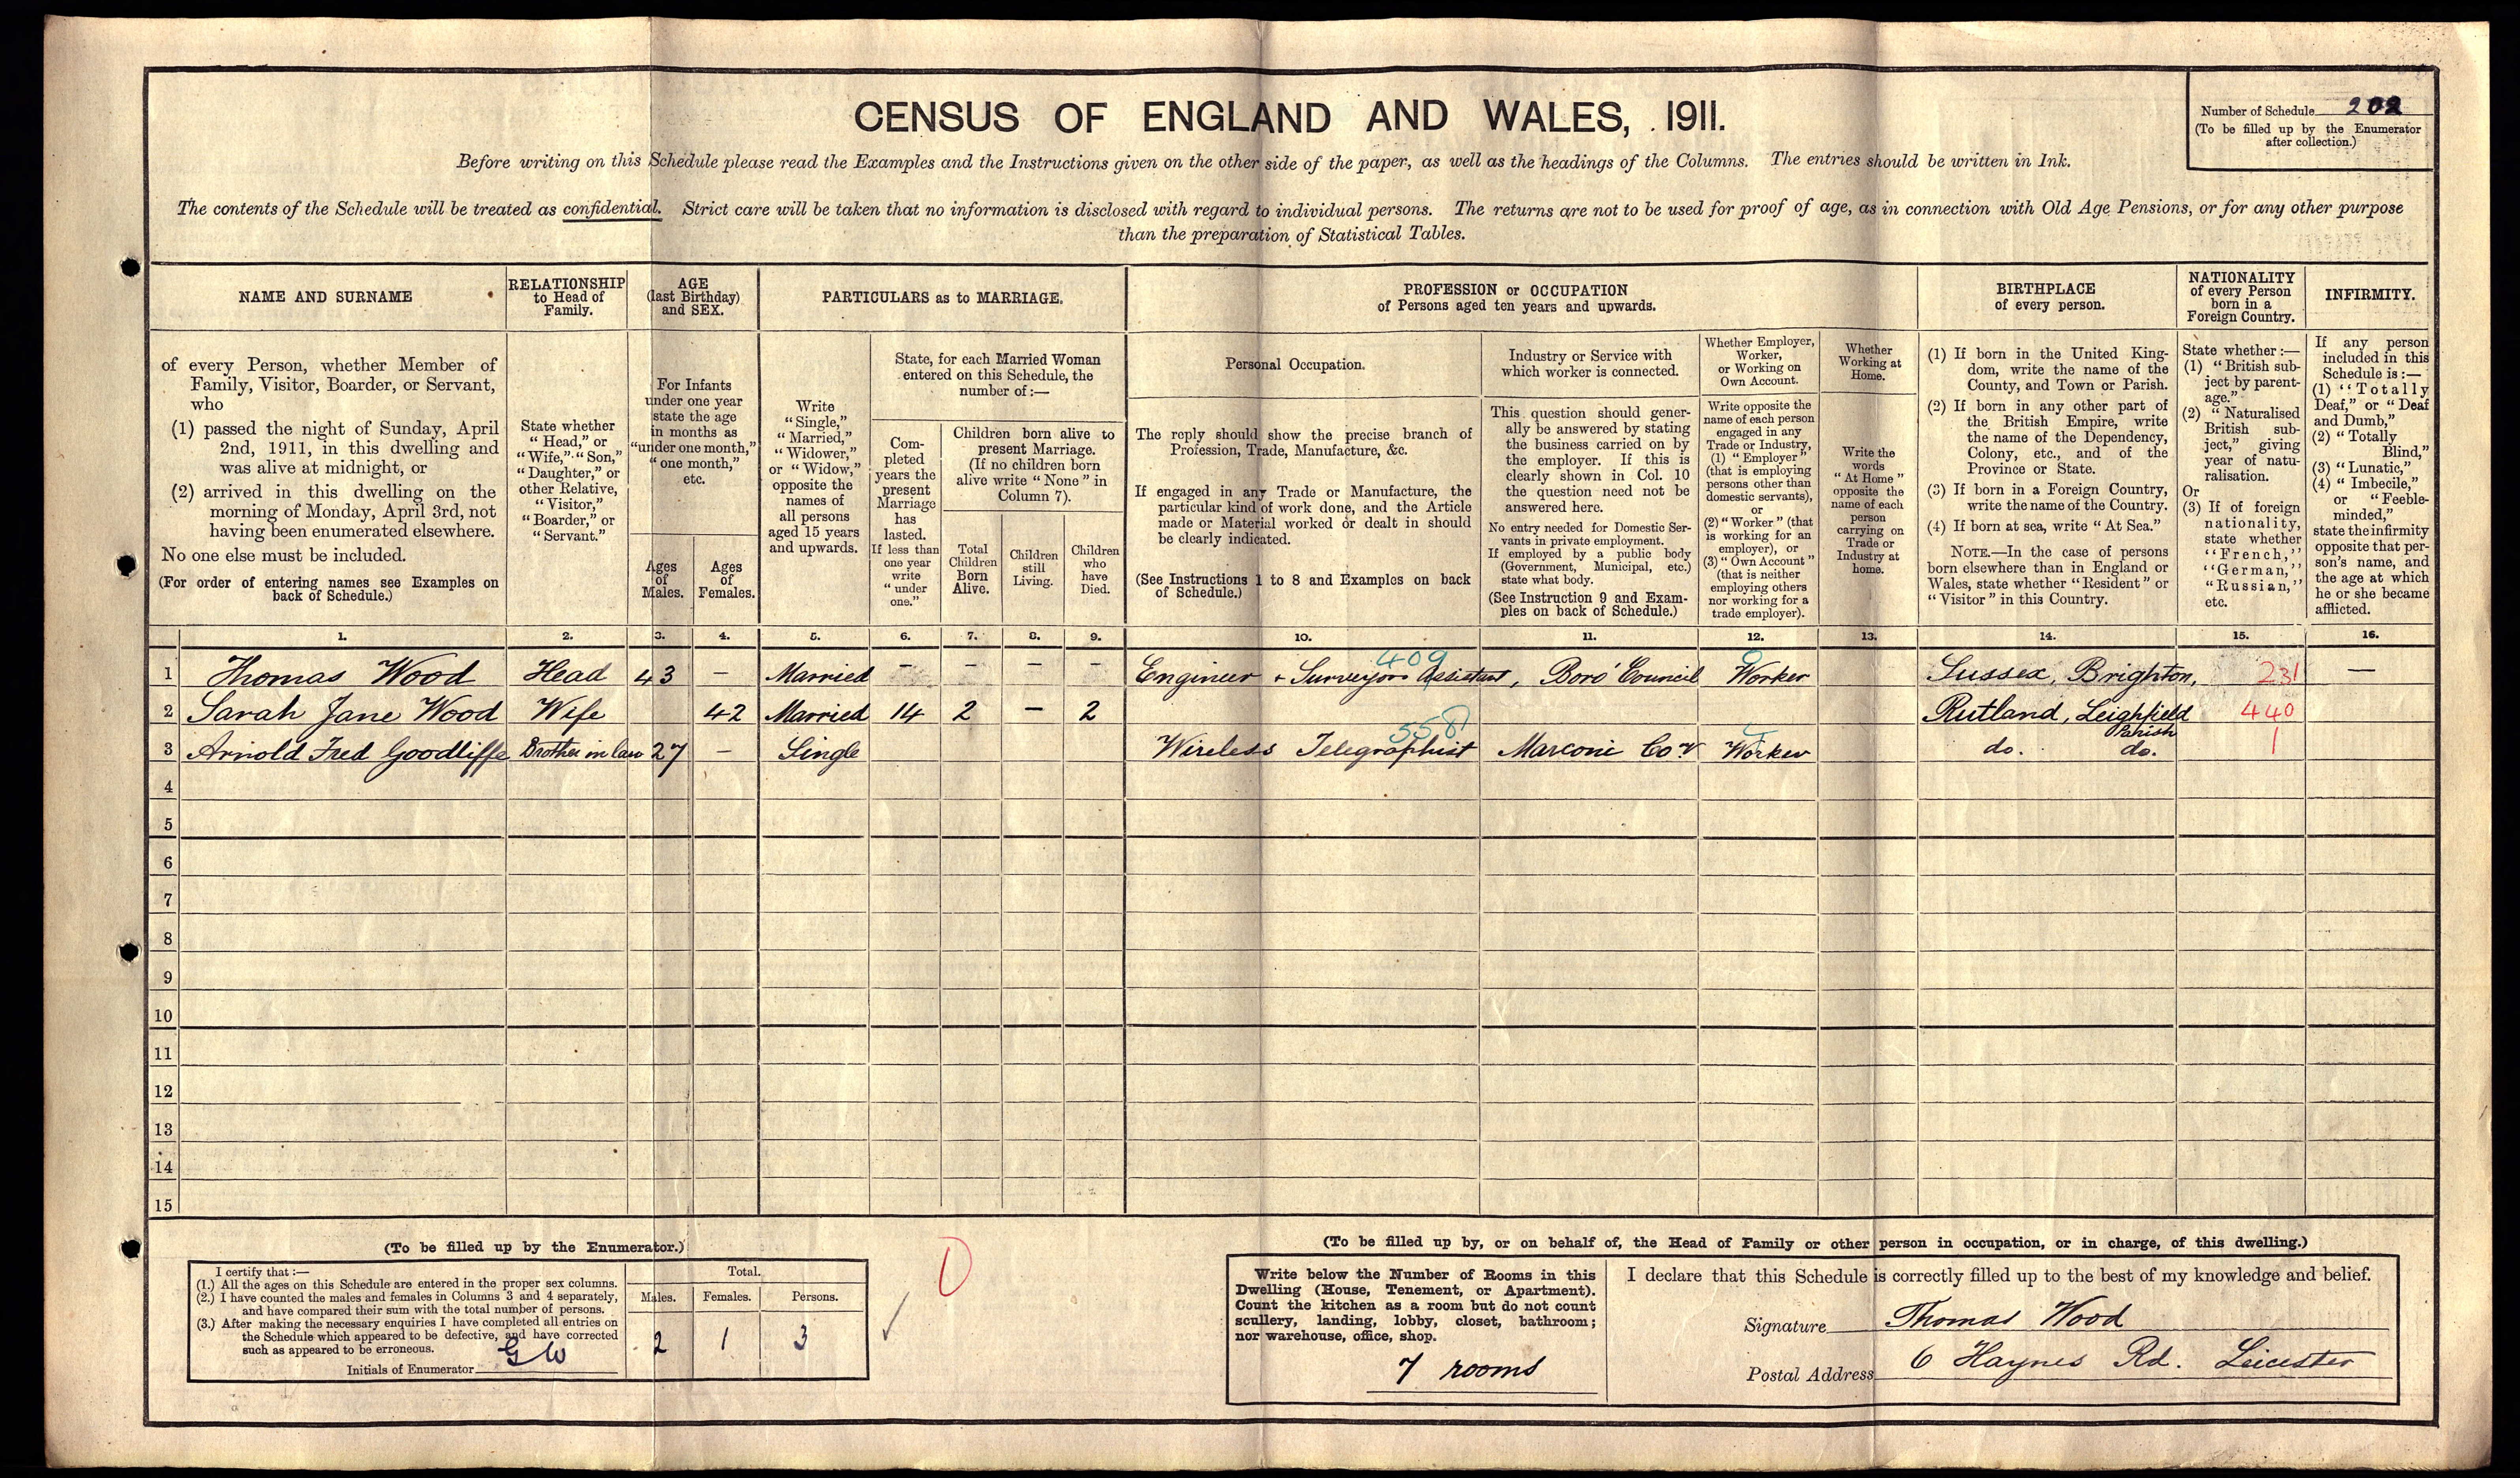 CENSUS OF ENGLAND AND WALES, 1911.
Number of Schedule 202
(To be filled up by the Enumerator
after collection.)
Before writing on this Schedule please read the Examples and the Instructions given on the other side of the paper, as well as the headings of the Columns. The entries should be written in Ink.
The contents of the Schedule will be treated as confidential. Strict care will be taken that no information is disclosed with regard to individual persons. The returns are not to be used for proof of age, as in connection with Old Age Pensions, or for any other purpose
than the preparation of Statistical Tables.
NAME AND SURNAME
of every Person, whether Member of
Family, Visitor, Boarder, or Servant,
who
(1) passed the night of Sunday, April
2nd, 1911, in this dwelling and
was alive at midnight, or
(2) arrived in this dwelling on the
morning of Monday, April 3rd, not
having been enumerated elsewhere.
No one else must be included.
(For order of entering names see Examples on
back of Schedule.)
RELATIONSHIP
to Head of
Family.
State whether
"Head," or
"Wife," "Son,"
"Daughter," or
other Relative,
"Visitor,"
"Boarder," or
"Servant."
AGE
(last Birthday)
and SEX.
For Infants
under one year
state the age
in months as
"under one month,"
"one month,"
etc.
Ages
of
Males.
Ages
of
Females.
PARTICULARS as to MARRIAGE.
Write
"Single,"
"Married,"
"Widower,"
or "Widow,"
opposite the
names of
all persons
aged 15 years
and upwards.
State, for each Married Woman
entered on this Schedule, the
number of :—
Com-
pleted
years the
present
Marriage
has
lasted.
If less than
one year
write
"under
one."
Children born alive to
present Marriage.
(If no children born
alive write "None" in
Column 7).
Total
Children
Born
Alive.
Children
still
Living.
Children
who
have
Died.
PROFESSION or OCCUPATION
of Persons aged ten years and upwards.
Personal Occupation.
The reply should show the precise branch of
Profession, Trade, Manufacture, &c.
If engaged in any Trade or Manufacture, the
particular kind of work done, and the Article
made or Material worked or dealt in should
be clearly indicated.
(See Instructions 1 to 8 and Examples on back
of Schedule.)
Industry or Service with
which worker is connected.
This question should gener-
ally be answered by stating
the business carried on by
the employer. If this is
clearly shown in Col. 10
the question need not be
answered here.
No entry needed for Domestic Ser-
vants in private employment.
If employed by a public body
(Government, Municipal, etc.)
state what body.
(See Instruction 9 and Exam-
ples on back of Schedule.)
Whether Employer,
Worker,
or Working on
Own Account.
Write opposite the
name of each person
engaged in any
Trade or Industry,
(1) "Employer"
(that is employing
persons other than
domestic servants),
or
(2) "Worker" (that
is working for an
employer), or
(3) "Own Account"
(that is neither
employing others
nor working for a
trade employer).
Whether
Working at
Home.
Write the
words
"At Home"
opposite the
name of each
person
carrying on
Trade or
Industry at
home.
BIRTHPLACE
of every person.
(1) If born in the United King-
dom, write the name of the
County, and Town or Parish.
(2) If born in any other part of
the British Empire, write
the name of the Dependency,
Colony, etc., and of the
Province or State.
(3) If born in a Foreign Country,
write the name of the Country.
(4) If born at sea, write "At Sea."
NOTE.—In the case of persons
born elsewhere than in England or
Wales, state whether "Resident" or
"Visitor" in this Country.
NATIONALITY
of every Person
born in a
Foreign Country.
State whether :—
(1) "British sub-
ject by parent-
age."
(2) "Naturalised
British sub-
ject," giving
year of natu-
ralisation.
Or
(3) If of foreign
nationality,
state whether
"French,"
"German,"
"Russian,"
etc.
INFIRMITY.
If any person
included in this
Schedule is :—
(1) "Totally
Deaf," or "Deaf
and Dumb,"
(2) "Totally
Blind,"
(3) "Lunatic,"
(4) "Imbecile,"
or "Feeble-
minded,"
state the infirmity
opposite that per-
son's name, and
the age at which
he or she became
afflicted.
1. 2. 3. 4. 5. 6. 7. 8. 9. 10. 11. 12. 13. 14. 15. 16.
409
1 Thomas Wood Head 43 — Married — — — — Engineer & Surveyors Assistant, Boro' Council Worker Sussex, Brighton, 231 —
2 Sarah Jane Wood Wife 42 Married 14 2 — 2 Rutland, Leighfield 440
Parish
558
3 Arnold Fred Goodliffe Brother in law 27 — Single Wireless Telegraphist Marconi Coy Worker do. do. 1
4
5
6
7
8
9
10
11
12
13
14
15
(To be filled up by the Enumerator.)
I certify that :—
(1.) All the ages on this Schedule are entered in the proper sex columns.
(2.) I have counted the males and females in Columns 3 and 4 separately,
and have compared their sum with the total number of persons.
(3.) After making the necessary enquiries I have completed all entries on
the Schedule which appeared to be defective, and have corrected
such as appeared to be erroneous.
Initials of Enumerator GW
Total.
Males. Females. Persons.
2 1 3
(To be filled up by, or on behalf of, the Head of Family or other person in occupation, or in charge, of this dwelling.)
Write below the Number of Rooms in this
Dwelling (House, Tenement, or Apartment).
Count the kitchen as a room but do not count
scullery, landing, lobby, closet, bathroom;
nor warehouse, office, shop.
7 rooms
I declare that this Schedule is correctly filled up to the best of my knowledge and belief.
Signature Thomas Wood
Postal Address 6 Haynes Rd. Leicester